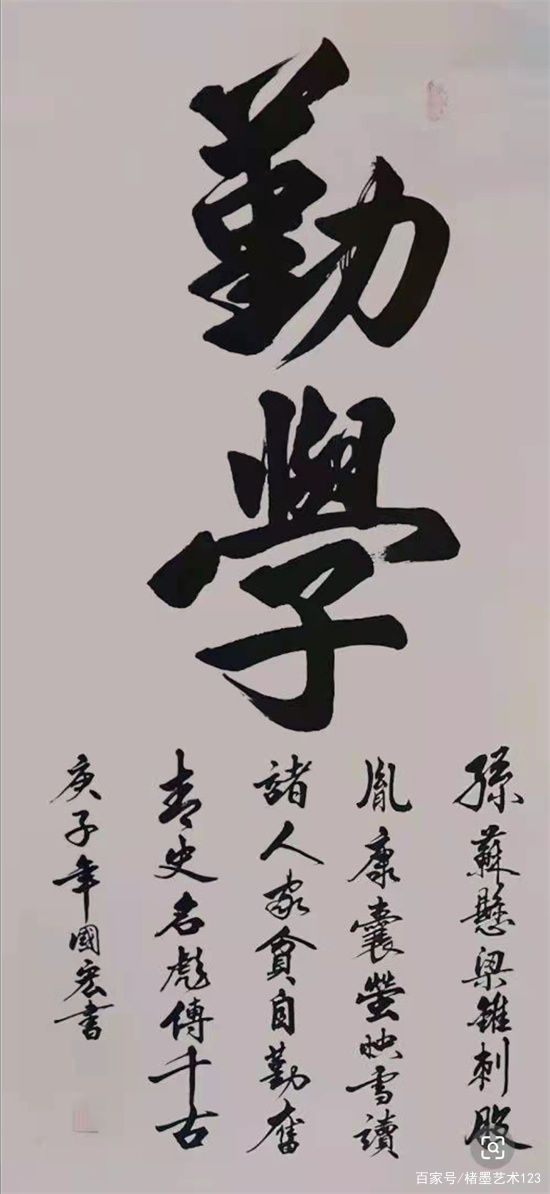 勤學
孫蘇懸梁錐刺股
胤康囊螢映雪讀
諸人家貧自勤奮
青史名彪傳千古
庚子年國宏書
百家号/楮墨艺术123